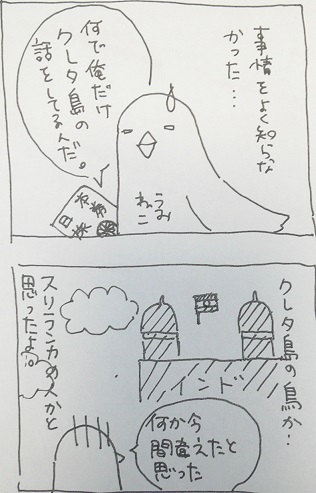 事情をよく知らな
かった…
何で俺だけ
クレタ島の
話をしてるんだ。
うみ
ねこ
クレタ島の鳥か…
インド
スリランカの人かと
思ったよ。
何か今
間違えたと
思った